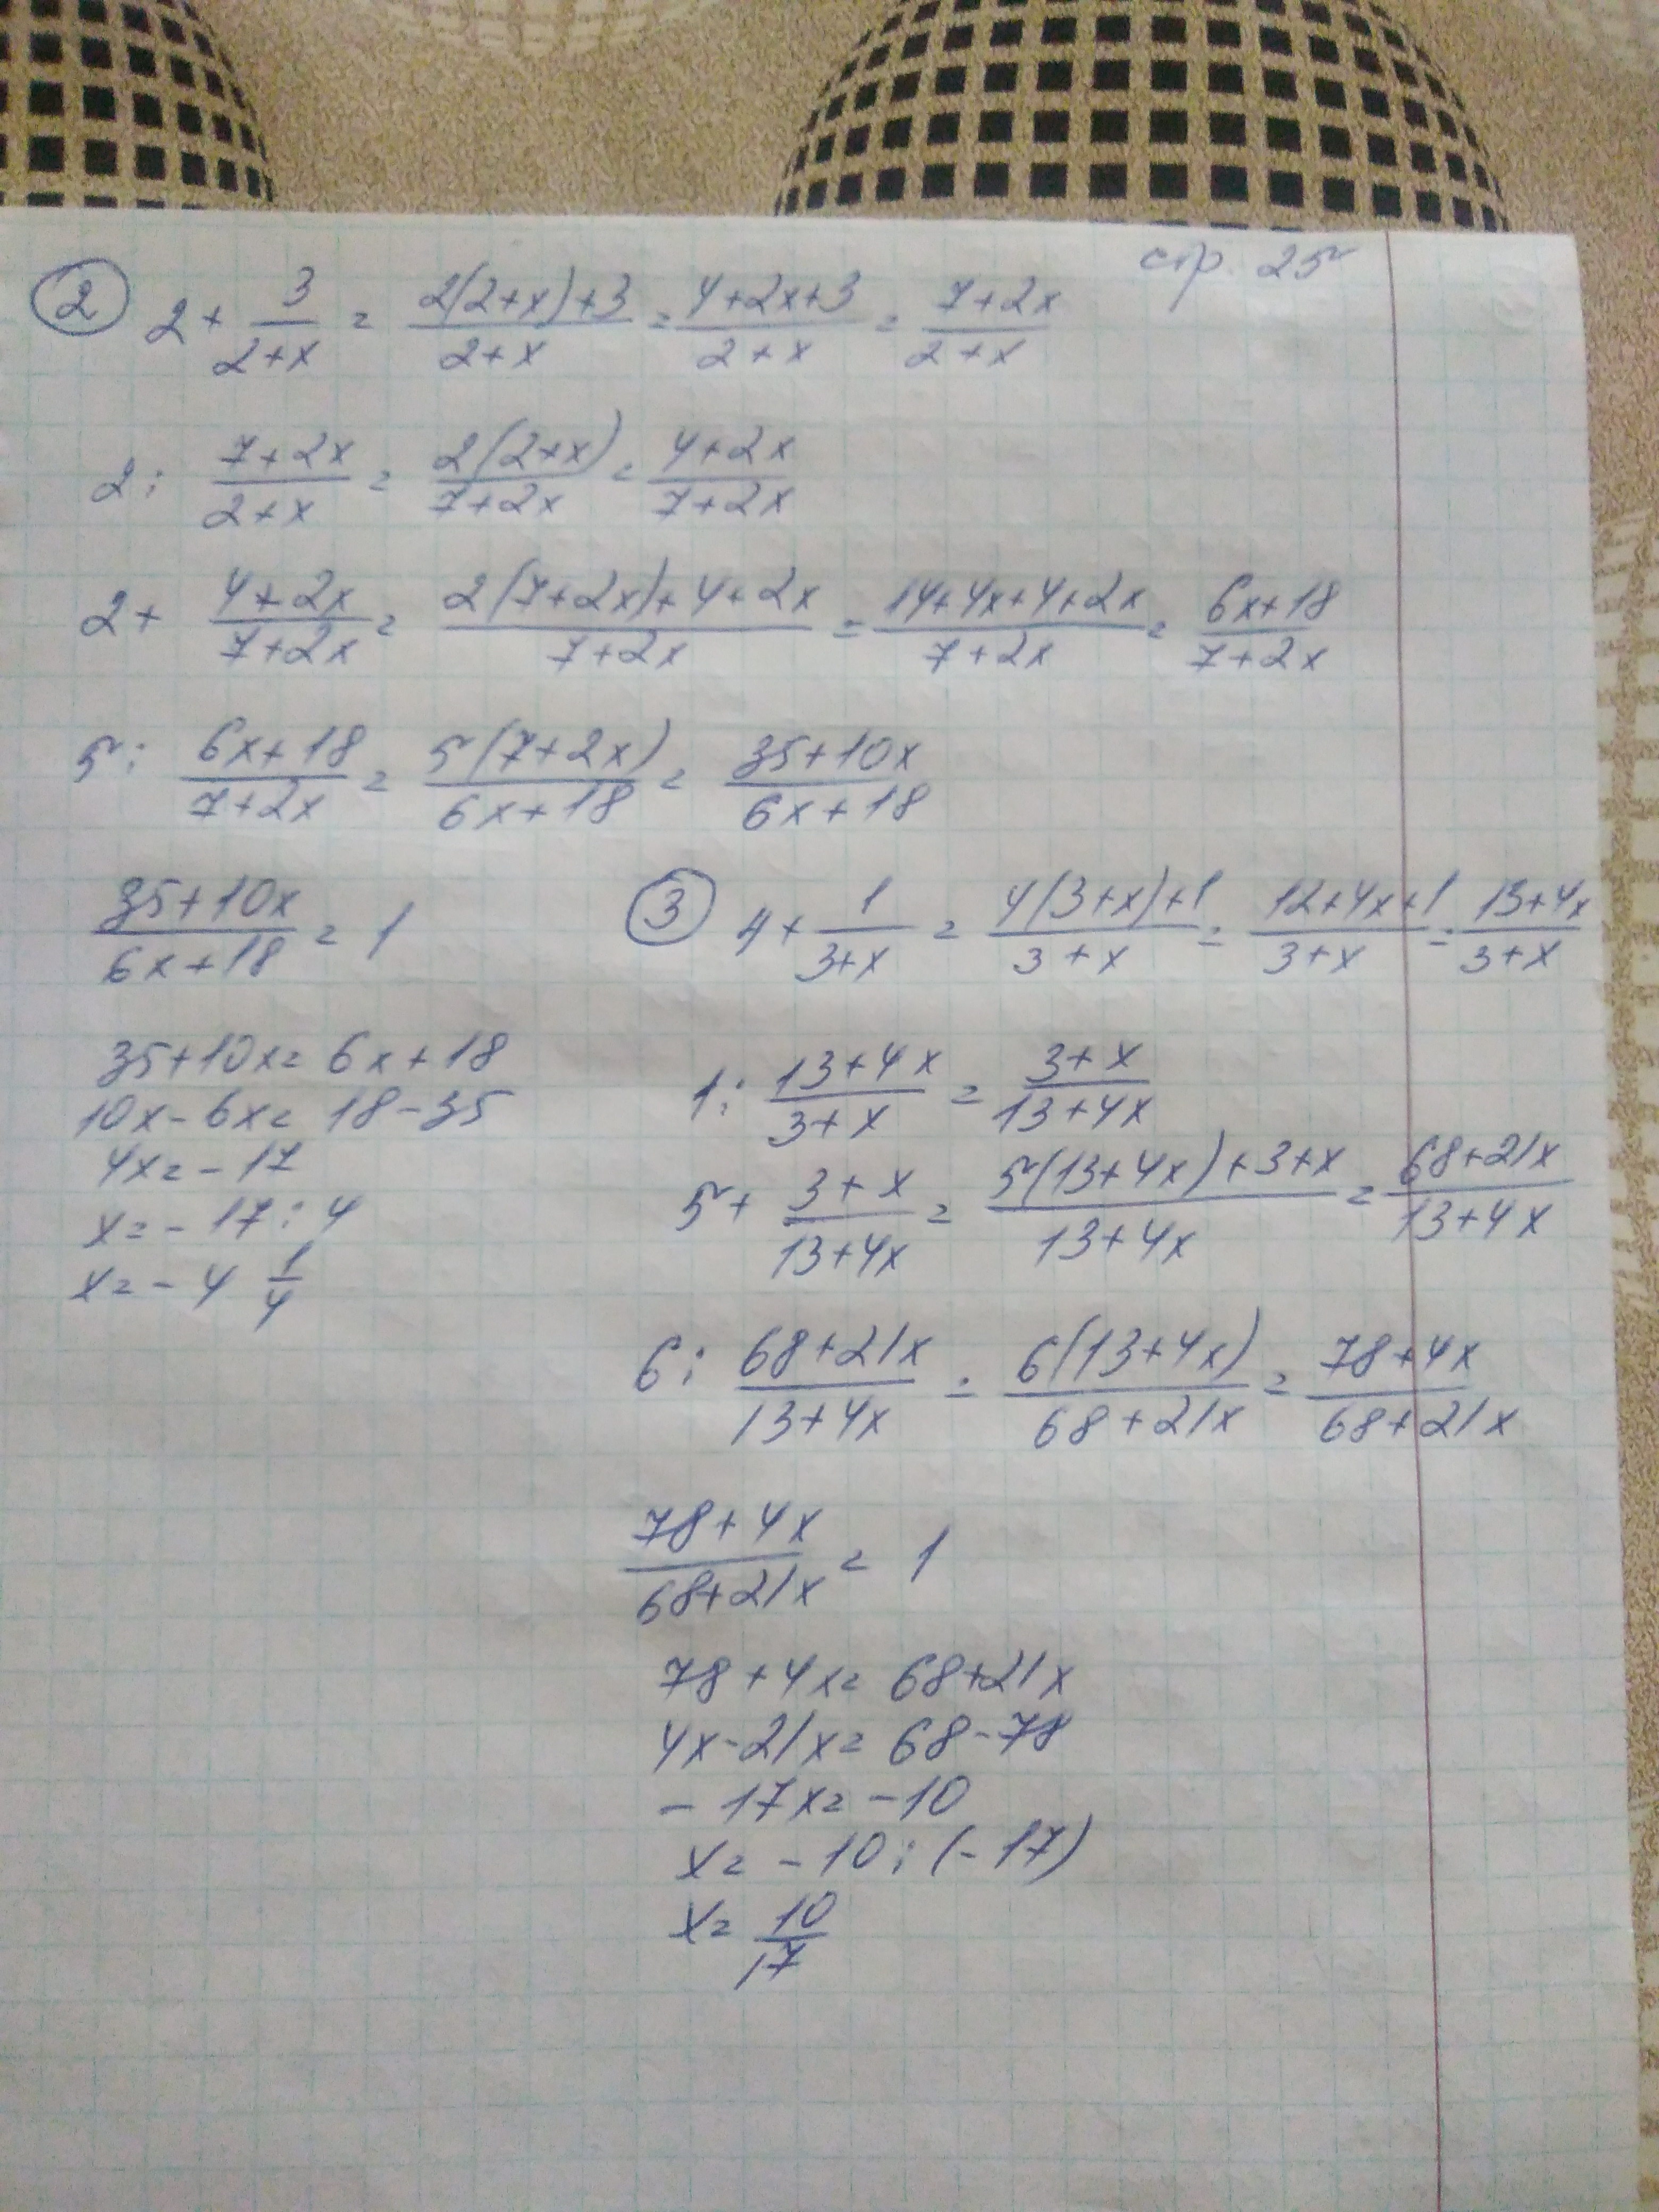 стр. 25
② 2 + 3/(2+x) = (2(2+x)+3)/(2+x) = (4+2x+3)/(2+x) = (7+2x)/(2+x)
2 : (7+2x)/(2+x) = (2(2+x))/(7+2x) = (4+2x)/(7+2x)
2 + (4+2x)/(7+2x) = (2(7+2x)+4+2x)/(7+2x) = (14+4x+4+2x)/(7+2x) = (6x+18)/(7+2x)
5 : (6x+18)/(7+2x) = (5(7+2x))/(6x+18) = (35+10x)/(6x+18)
(35+10x)/(6x+18) = 1
35+10x = 6x+18
10x-6x = 18-35
4x = -17
x = -17 : 4
x = -4 1/4
③ 4 + 1/(3+x) = (4(3+x)+1)/(3+x) = (12+4x+1)/(3+x) = (13+4x)/(3+x)
1 : (13+4x)/(3+x) = (3+x)/(13+4x)
5 + (3+x)/(13+4x) = (5(13+4x)+3+x)/(13+4x) = (68+21x)/(13+4x)
6 : (68+21x)/(13+4x) = (6(13+4x))/(68+21x) = (78+4x)/(68+21x)
(78+4x)/(68+21x) = 1
78+4x = 68+21x
4x-21x = 68-78
-17x = -10
x = -10 : (-17)
x = 10/17